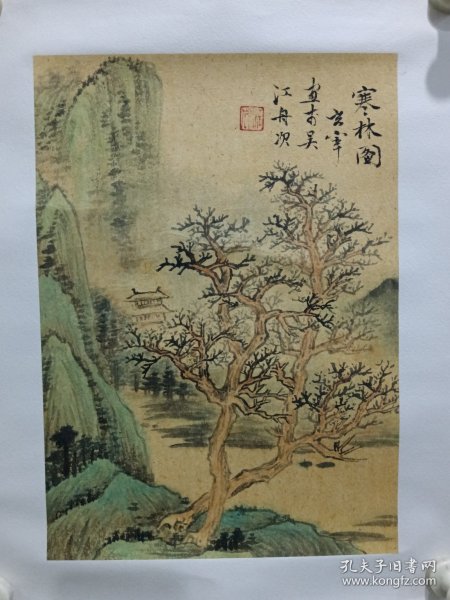 寒林图
玄宰
画于吴
江舟次
孔夫子旧书网
www.kongfz.com